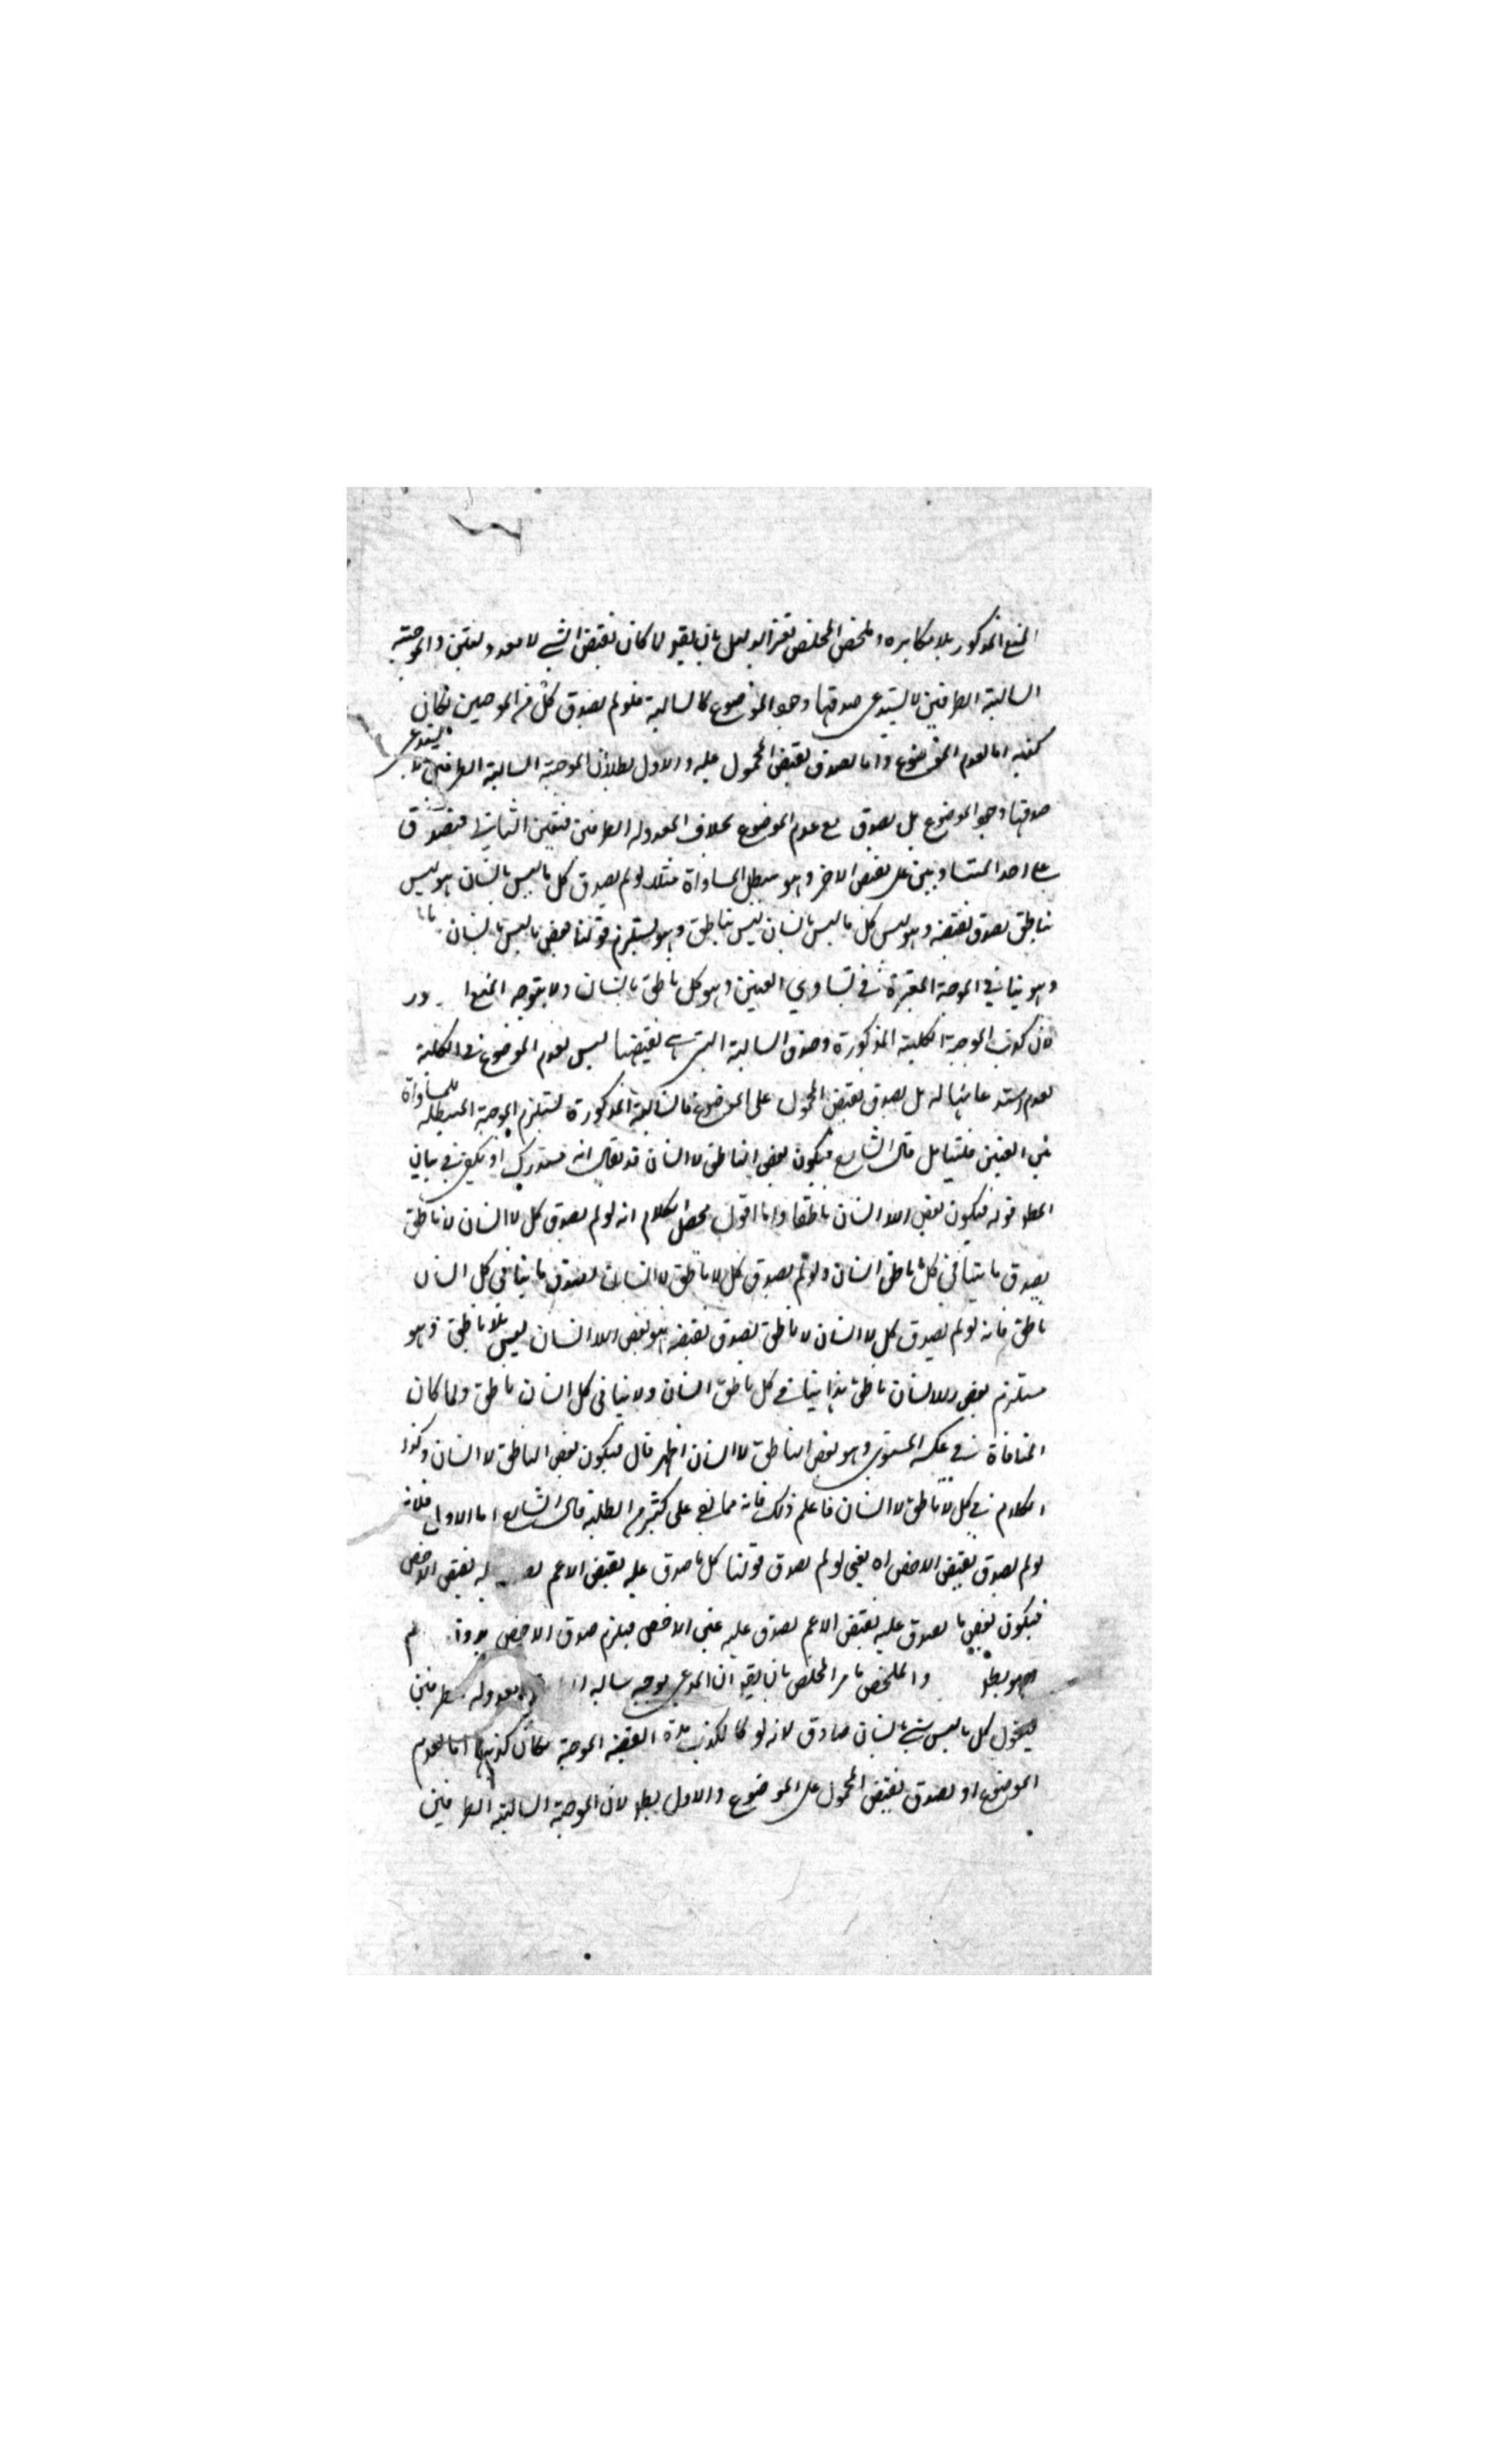 المنع المذكور بلا مكابره وملخص المخلص تقرير الدليل بان يقو لما كان نقيض الشيء لا معدولتين والموجبة
السالبة الطرفين لا يستدعى صدقها وجود الموضوع كالسالبة فلو لم يصدق كل من الموجبتين لكان
كذبه اما لعدم الموضوع واما لصدق نقيض المحمول عليه والاول بطلان الموجبة السالبة الطرفين لا يستدعى
صدقها وجود الموضوع بل يصدق مع عدم الموضوع بخلاف المعدوله الطرفين فتعين الثانى فيصدق
على احد المتساويين على نقيض الاخر وهو مبطل المساواة مثلا لو لم يصدق كل ما ليس بانسان هو ليس
بناطق لصدق نقيضه وهو ليس كل ما ليس بانسان ليس بناطق وهو يستلزم قولنا بعض ما ليس بانسان
وهو ينافى الموجبة المعتبرة فى تساوى العينين وهو كل ناطق بانسان ولا يتوجه المنع
لان كذب الموجبة الكلية المذكورة وصدق السالبة التى هى نقيضها ليس لعدم الموضوع فى الكلية
لعدم استدعائها له بل يصدق نقيض المحمول على الموضوع فالسالبة المذكورة تستلزم الموجبة المبطلة للمساواة
بين العينين فليتامل قال الشارح فيكون بعض الناطق لا انسان قد يقال انه مستدرك اذ يكفى فى بيان
المط قوله فيكون بعض اللا انسان ناطقا وانا اقول محصل الكلام انه لو لم يصدق كل لا انسان لا ناطق
يصدق ما ينافى كل ناطق انسان ولو لم يصدق كل لا ناطق لا انسان لصدق ما ينافى كل انسان
ناطق فانه لو لم يصدق كل لا انسان لا ناطق لصدق نقيضه هو بعض اللا انسان ليس بلا ناطق وهو
مستلزم بعض اللا انسان ناطق هذا ينافى كل ناطق انسان ولا ينافى كل انسان ناطق ولما كان
المنافاة فى عكسه المستوى وهو بعض الناطق لا انسان اظهر قال فيكون بعض الناطق لا انسان وكذا
الكلام فى كل لا ناطق لا انسان فاعلم ذلك فانه مما خفى على كثير من الطلبة قال الشارح اما الاول فلانه
لو لم يصدق نقيض الاخص اه يعنى لو لم يصدق قولنا كل ما صدق عليه نقيض الاعم نقيض الاخص
فيكون بعض ما يصدق عليه نقيض الاعم يصدق عليه عين الاخص فيلزم صدق الاخص بدون
وهو بط والملخص ما مر المخلص بان يقو ان المدعى موجبه سالبه معدوله الطرفين
فيقول كل ما ليس بانسان صادق لانه لو كذب هذه القضيه الموجبة لكان كذبها اما لعدم
الموضوع او لصدق نقيض المحمول على الموضوع والاول بط لان الموجبة السالبة الطرفين